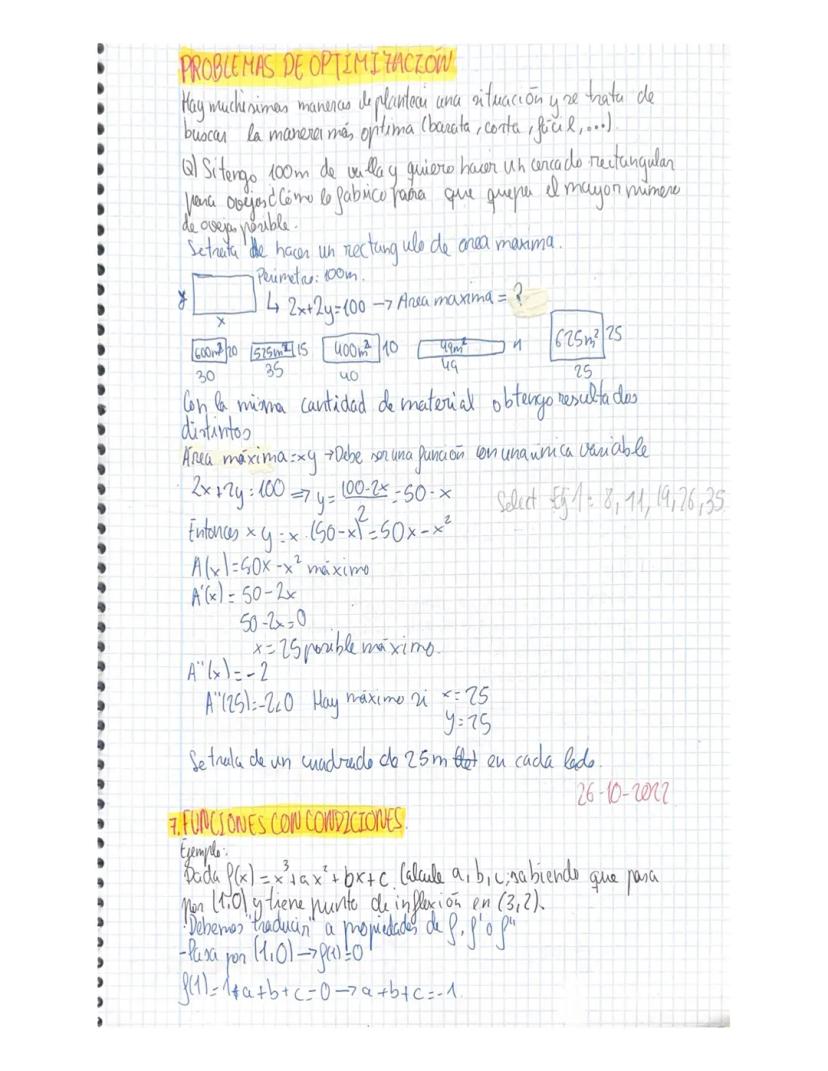 PROBLEMAS DE OPTIMIZACIÓN
Hay muchísimas maneras de plantear una situación y se trata de
buscar la manera más optima (barata, corta, fácil, ...).
Q) Si tengo 100m de valla y quiero hacer un cercado rectangular
para ovejas ¿Cómo lo fabrico para que quepa el mayor número
de ovejas posible.
Se trata de hacer un rectangulo de area maxima.
Perimetro: 100m.
y
↳ 2x+2y=100 → Area maxima = ?
x
600m² 20 525m² 15 400m² 10 49m² 1 625m² 25
30 35 40 49 25
Con la misma cantidad de material obtengo resultados
distintos
Área máxima = xy → Debe ser una función con una única variable
2x+2y=100 ⇒ y = (100-2x)/2 = 50-x
Select Ej 1: 8, 11, 19, 26, 35
Entonces xy = x·(50-x) = 50x-x²
A(x)=50x-x² máximo
A'(x) = 50-2x
50-2x=0
x=25 posible máximo.
A''(x)=-2
A''(25)=-2<0 Hay máximo si x=25
y=25
Se trata de un cuadrado de 25m en cada lado.
26-10-2022
7. FUNCIONES CON CONDICIONES.
Ejemplo:
Dada f(x) = x³+ax²+bx+c. Calcule a, b, c, sabiendo que pasa
por (1,0) y tiene punto de inflexión en (3,2).
Debemos "traducir" a propiedades de f, f' o f''
-Pasa por (1,0) → f(1)=0
f(1)=1+a+b+c=0 → a+b+c=-1.